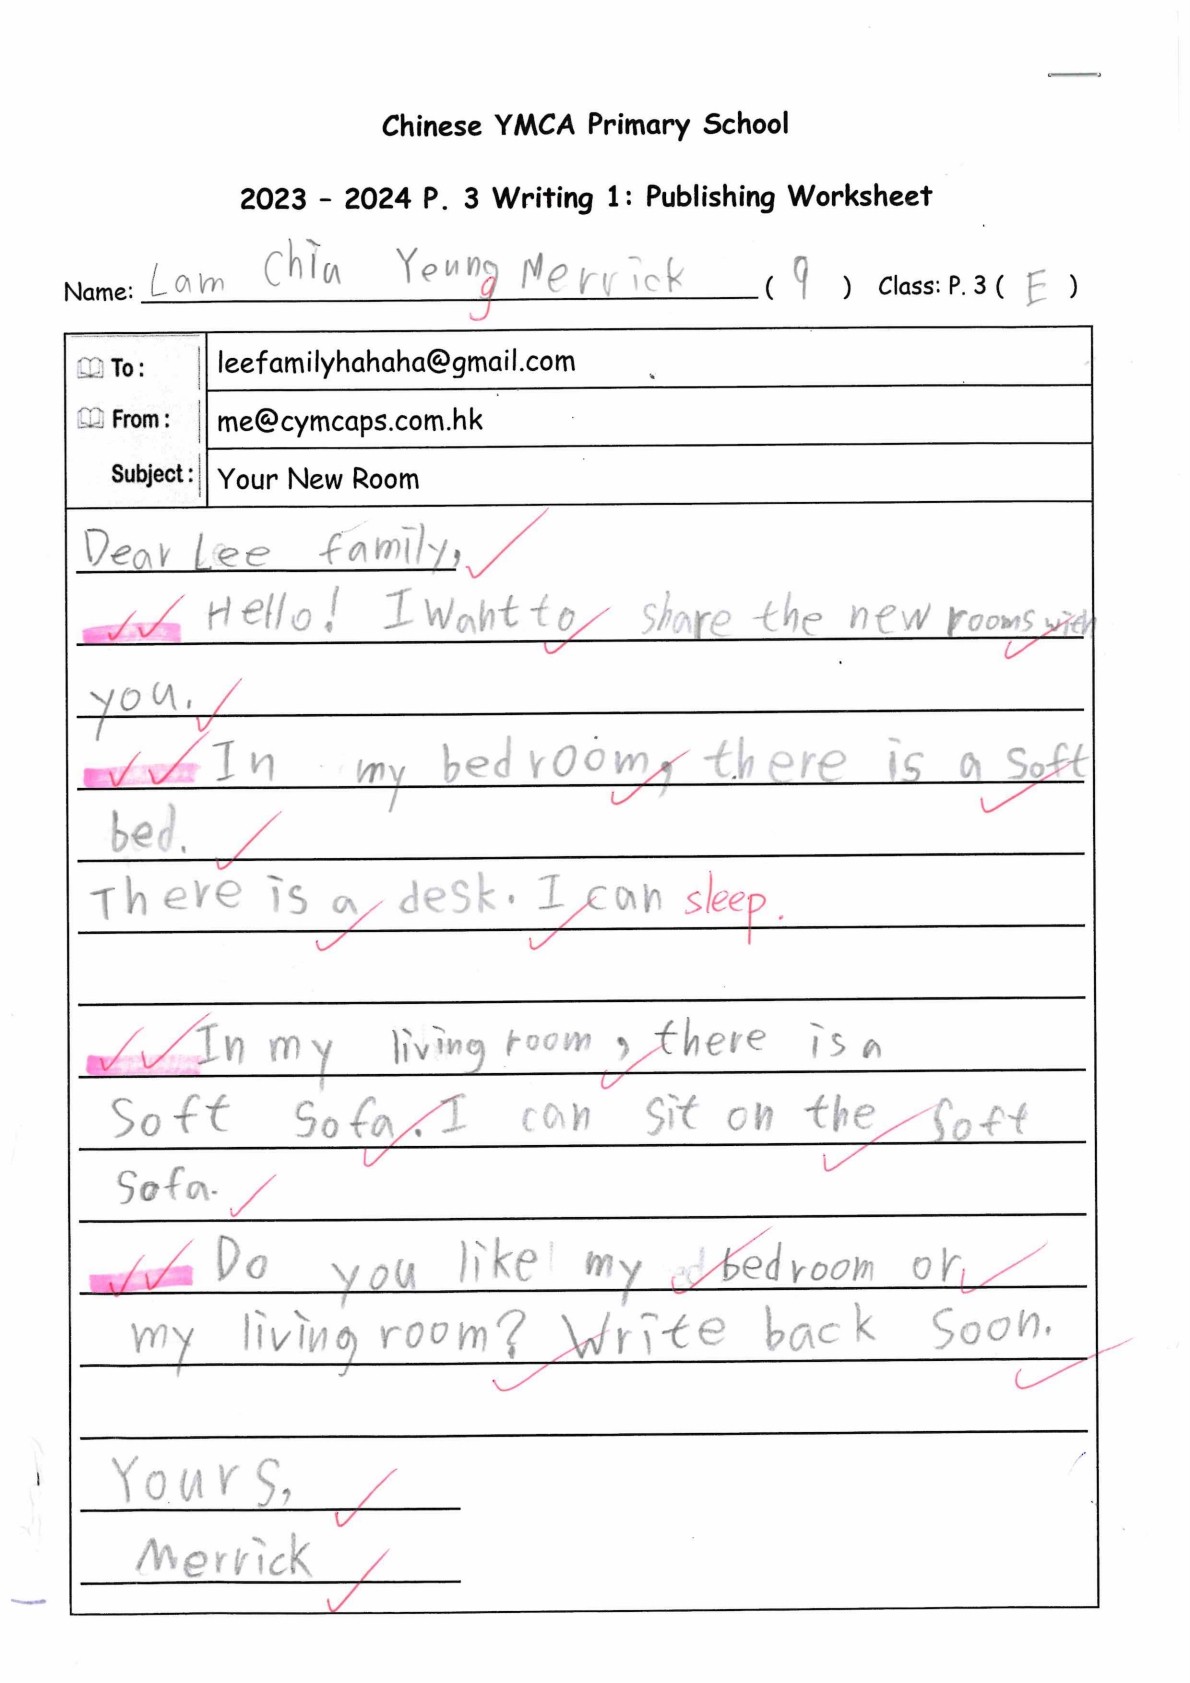 Chinese YMCA Primary School
2023 - 2024 P. 3 Writing 1: Publishing Worksheet
Name: Lam Chia Yeung Merrick ( 9 ) Class: P. 3 ( E )
To: leefamilyhahaha@gmail.com
From: me@cymcaps.com.hk
Subject: Your New Room
Dear Lee family,
Hello! I Want to share the new rooms with
you.
In my bedroom, there is a Soft
bed.
There is a desk. I can sleep.
In my living room, there is a
Soft Sofa. I can Sit on the Soft
Sofa.
Do you like my bedroom or
my living room? Write back Soon.
Yours,
Merrick